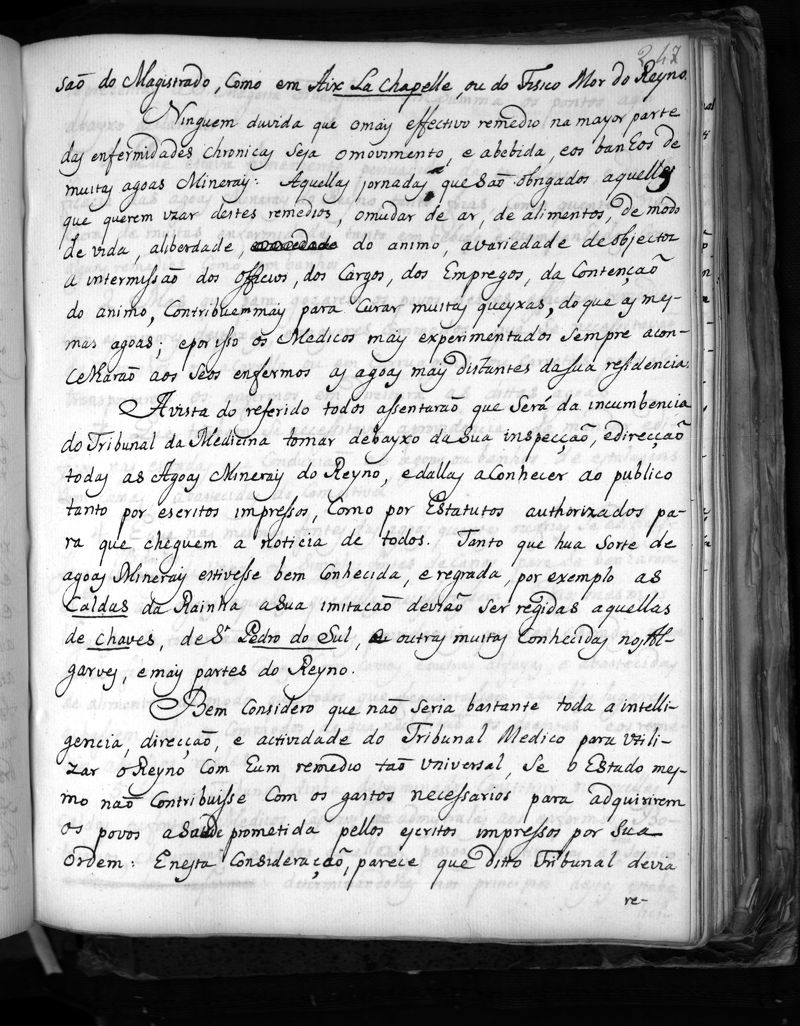 247
saõ do Magistrado, Como em Aix La Chapelle, ou do Fisico Mor do Reyno.
Ninguem duvida que o mais effectivo remedio na mayor parte
das enfermidades Chronicas seja o movimento, e a bebida, e os banhos de
muitas agoas Mineraes: Aquellas jornadas que saõ obrigados aquelles
que querem uzar destes remedios, o mudar de ar, de alimentos, de modo
de vida, a liberdade, do animo, a variedade de objectos
a intermissaõ dos officios, dos Cargos, dos Empregos, da Contençaõ
do animo, Contribuem mais para Curar muitas queyxas, do que as mes-
mas agoas; e por isso os Medicos mais experimentados sempre acon-
celharaõ aos seos enfermos as agoas mais distantes da sua residencia.
A vista do referido todos assentaraõ que Será da incumbencia
do Tribunal da Medicina tomar debayxo da Sua inspecçaõ, e direcçaõ
todas as Agoas Mineraes do Reyno, e dallas a Conhecer ao publico
tanto por escritos impressos, Como por Estatutos authorizados pa-
ra que cheguem a noticia de todos. Tanto que hua Sorte de
agoas Mineraes estivesse bem Conhecida, e regrada, por exemplo as
Caldas da Rainha a Sua imitacaõ deviaõ Ser regidas aquellas
de chaves, de S. Pedro do Sul, e outras muitas Conhecidas nos Al-
garves, e mais partes do Reyno.
Bem Considero que naõ Seria bastante toda a intelli-
gencia, direcçaõ, e actividade do Tribunal Medico para Utili-
zar o Reyno Com hum remedio taõ Universal, Se o Estado mes-
mo naõ Contribuisse Com os gastos necessarios para adquirirem
os povos a Saude prometida pellos escritos impressos por Sua
ordem: E nesta Consideraçaõ, parece que ditto Tribunal devia
re-